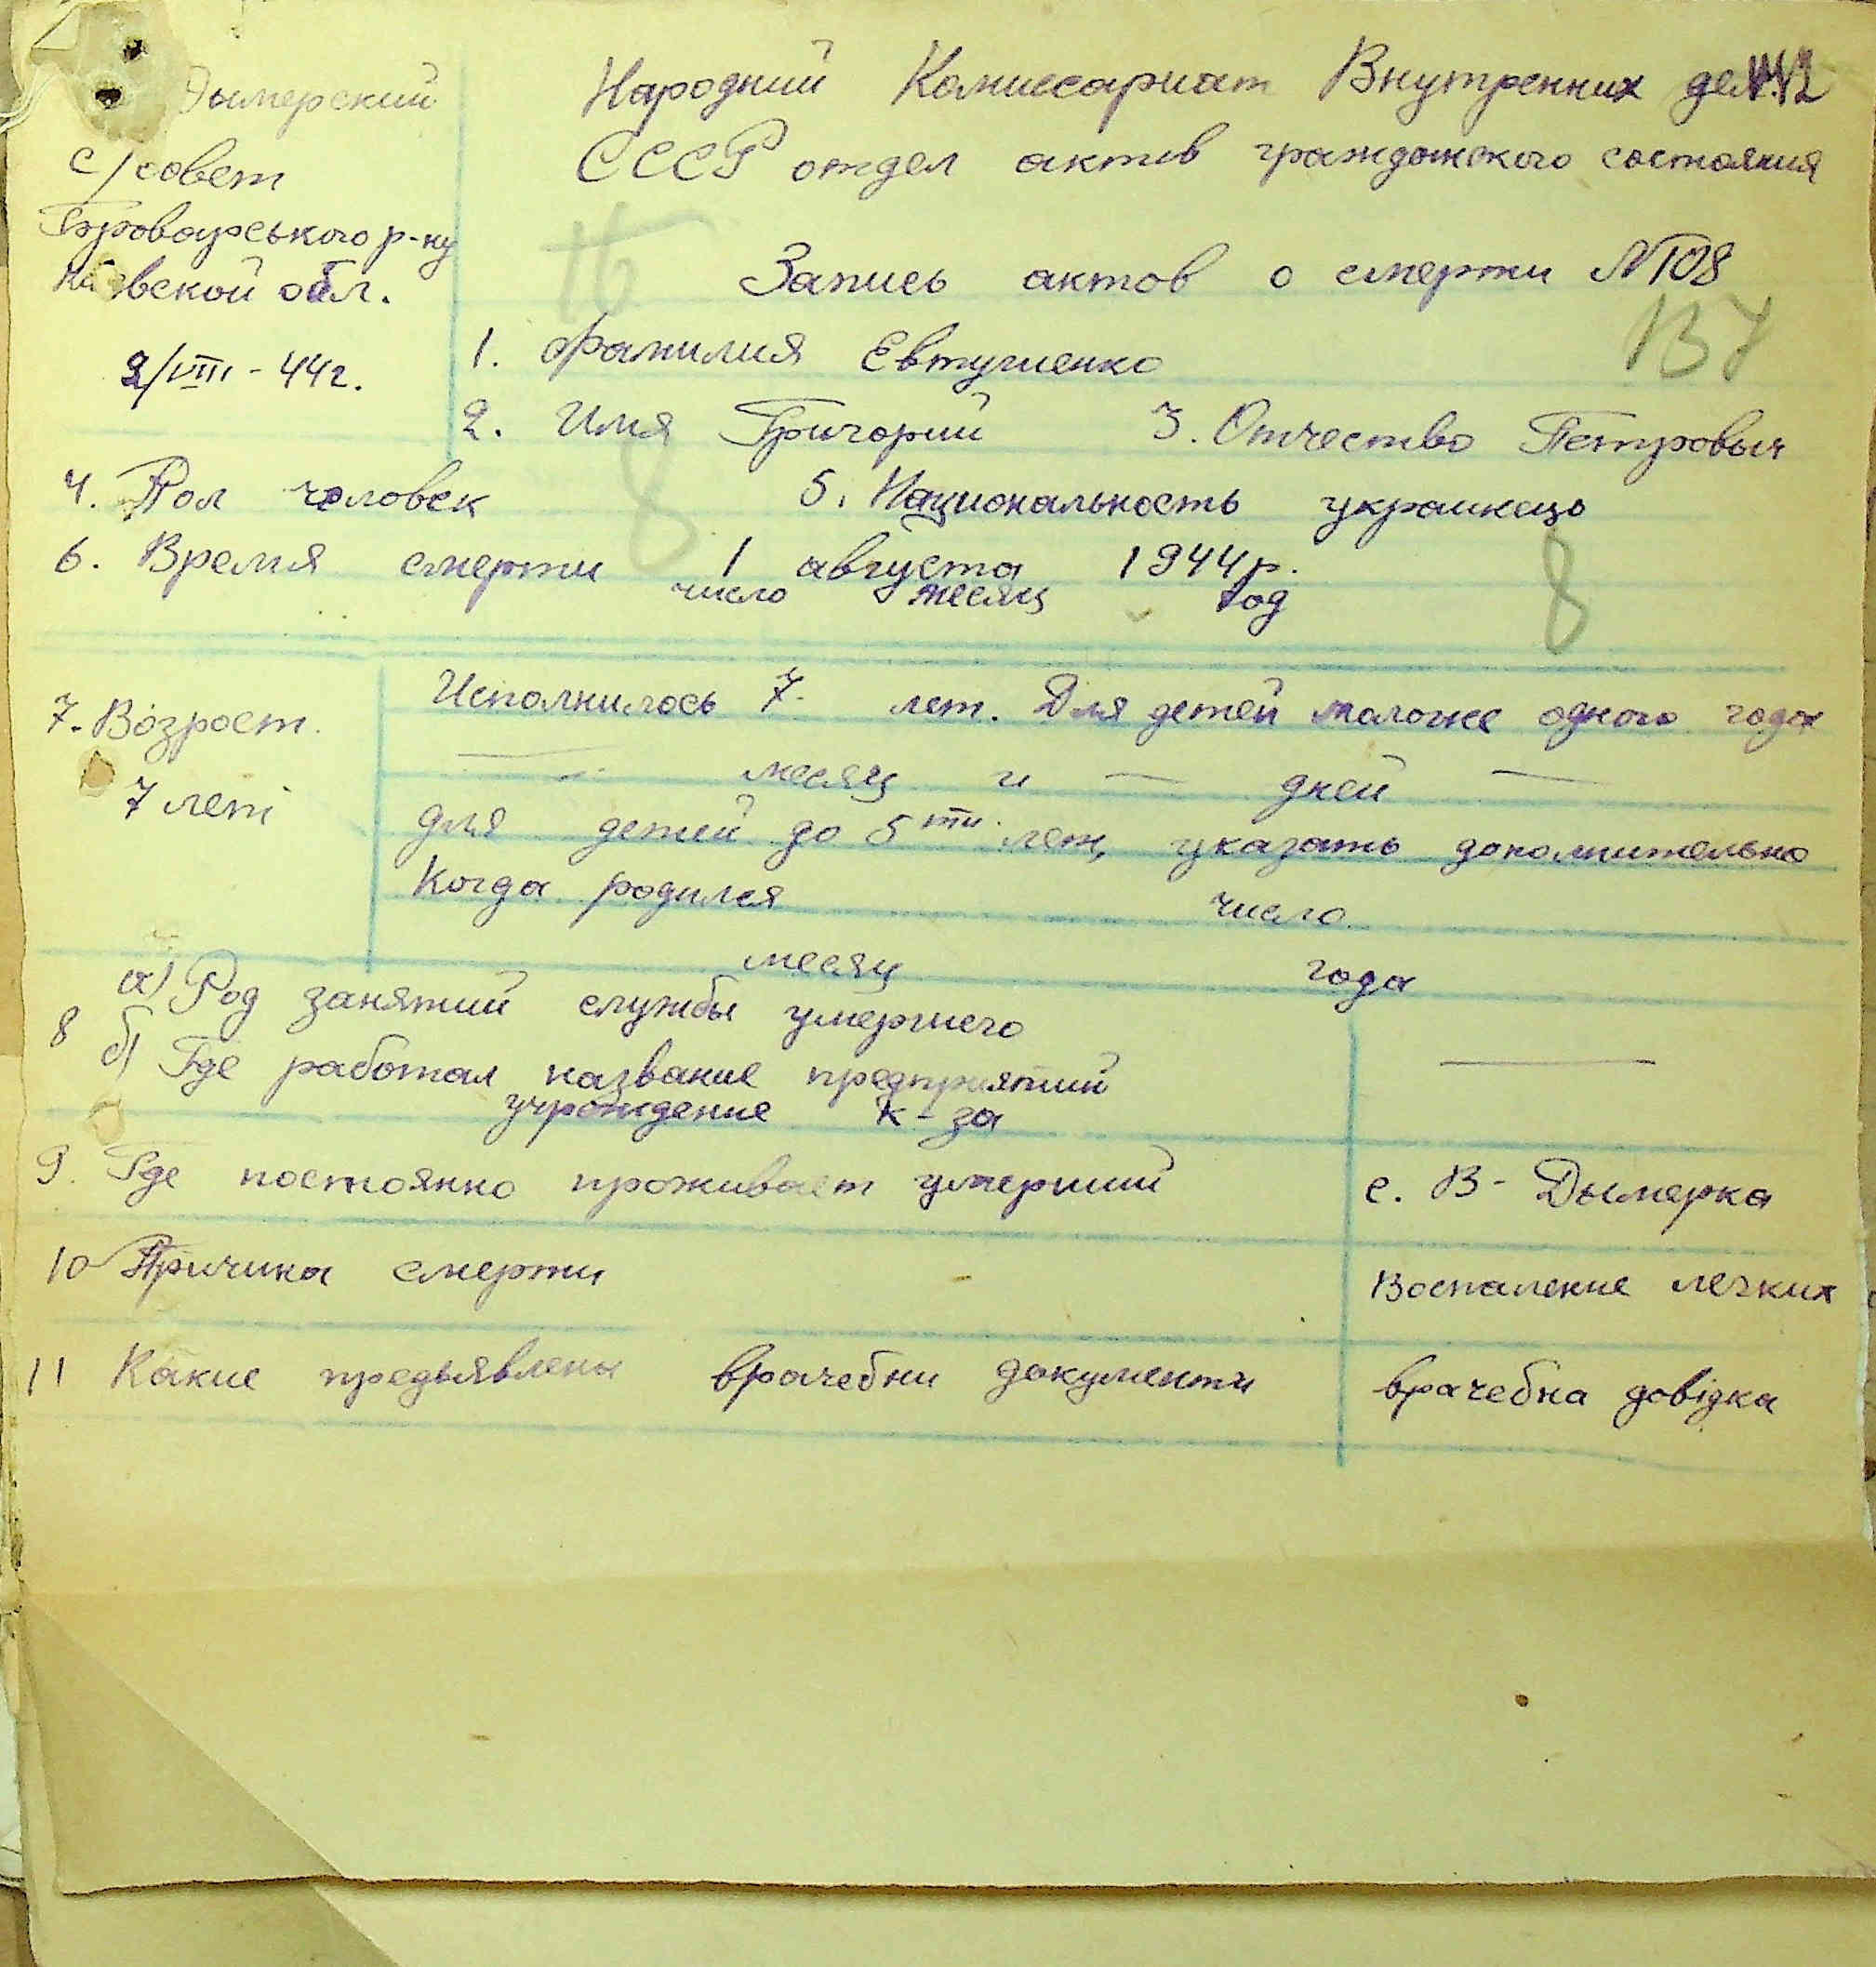 Дымерский
с/совет
Броварського р-ну
Киевской обл.
2/VIII - 44г.
Народний Комиссариат Внутренних дел
СССР отдел актів гражданского состояния
Запись актов о смерти №108
137
1. Фамилия Евтушенко
2. Имя Григорий 3. Отчество Петровыч
4. Пол человек 5. Национальность украинець
6. Время смерти 1 августа 1944р.
число месяц год
8 8
7. Возраст.
7 леті
Исполнилось 7 лет. Для детей моложе одного года
— месяц и — дней —
для детей до 5ти лет, указать дополнительно
Когда родился число
месяц года
8 а) Род занятий службы умершего
б) Где работал название предприятий —
учреждение к-за
9. Где постоянно проживает умерший с. В-Дымерка
10 Причина смерти Воспаление легких
11 Какие предьявлены врачебни документи врачебна довідка